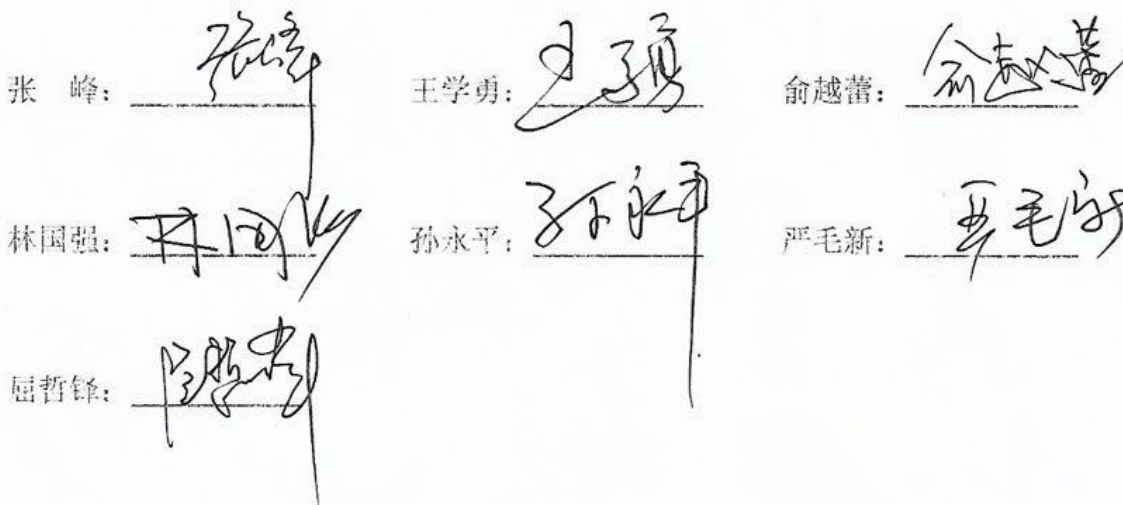 张 峰：张峰 王学勇：王学勇 俞越蕾：俞越蕾
林国强：林国强 孙永平：孙永平 严毛新：严毛新
屈哲锋：屈哲锋